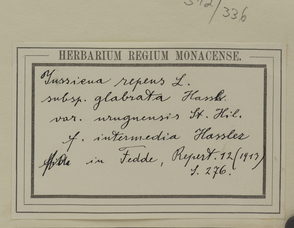 312/336
HERBARIUM REGIUM MONACENSE.
Jussieua repens L.
subsp. glabrata Hassk.
var. uruguensis St. Hil.
f. intermedia Hassler
in Fedde, Repert. 12 (1913)
S. 276.